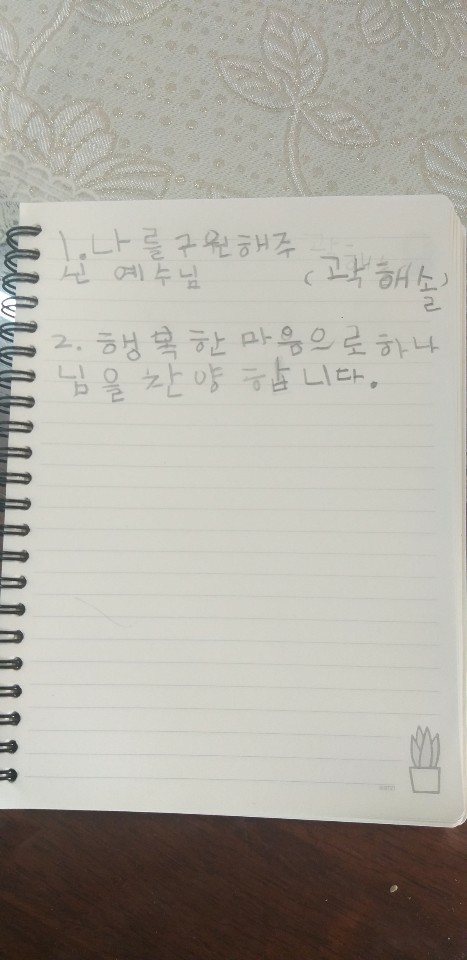 1. 나를 구원해주
신 예수님 (곽해솔)
2. 행복한 마음으로 하나
님을 찬양 합니다.